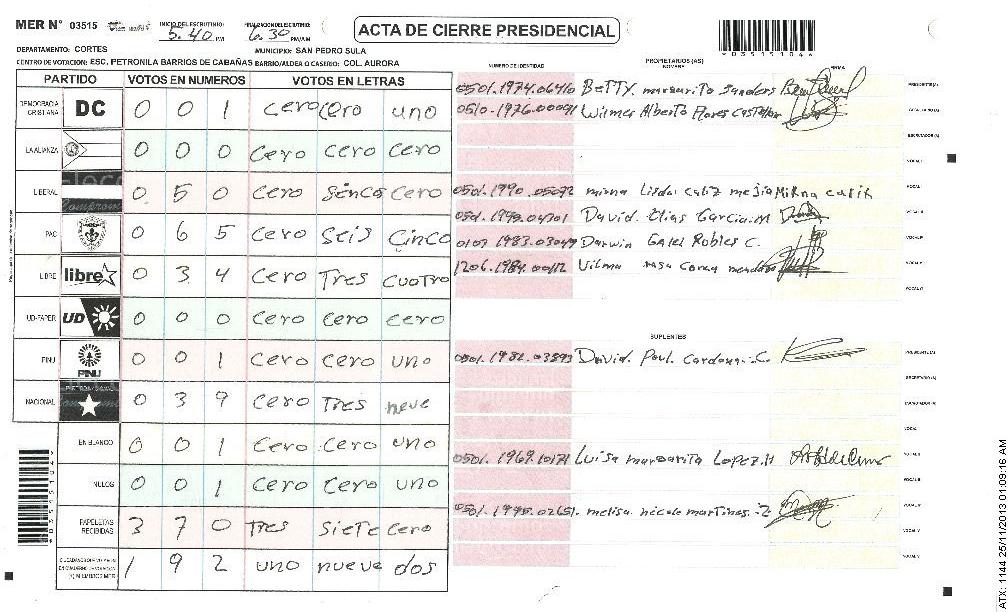 MER N° 03515
INICIO DEL ESCRUTINIO: 5.40 PM
FINALIZACION DEL ESCRUTINIO: 6.30 PM/AM
ACTA DE CIERRE PRESIDENCIAL
DEPARTAMENTO: CORTES MUNICIPIO: SAN PEDRO SULA
CENTRO DE VOTACION: ESC. PETRONILA BARRIOS DE CABAÑAS BARRIO/ALDEA O CASERIO: COL. AURORA
PARTIDO VOTOS EN NUMEROS VOTOS EN LETRAS
DEMOCRACIA CRISTIANA DC 0 0 1 cero cero uno
LA ALIANZA 0 0 0 cero cero cero
LIBERAL 0 5 0 cero sinco cero
PAC 0 6 5 cero seis cinco
LIBRE libre 0 3 4 cero Tres cuatro
UD-FAPER UD 0 0 0 cero cero cero
PINU PINU 0 0 1 cero cero uno
NACIONAL 0 3 9 cero Tres neve
EN BLANCO 0 0 1 cero cero uno
NULOS 0 0 1 cero cero uno
PAPELETAS RECIBIDAS 3 7 0 Tres siete cero
(+) MIEMBROS MER 1 9 2 uno nueve dos
NUMERO DE IDENTIDAD PROPIETARIOS (AS) NOMBRE FIRMA
0501.1974.06410 Betty margarita Sanders PRESIDENTE (A)
0510.1976.00091 Wilmer Alberto Flores Castellon SECRETARIO (A)
ESCRUTADOR (A)
VOCAL I
0501.1990.05072 mirna Lisdai caliz mejia VOCAL
0501.1990.04301 David Elias Garcia.M VOCAL
0107.1983.03049 Darwin Galel Robles C. VOCAL
1206.1984.00112 Vilma rosa Corea VOCAL
VOCAL
SUPLENTES
0501.1982.03893 David Paul Cardona C. PRESIDENTE (A)
SECRETARIO (A)
ESCRUTADOR (A)
VOCAL
0501.1969.10171 Luisa margarita Lopez.H VOCAL
VOCAL
0501.1995.02651 melisa nicole martines .Z VOCAL
VOCAL
ATX: 1144 25/11/2013 01:09:16 AM